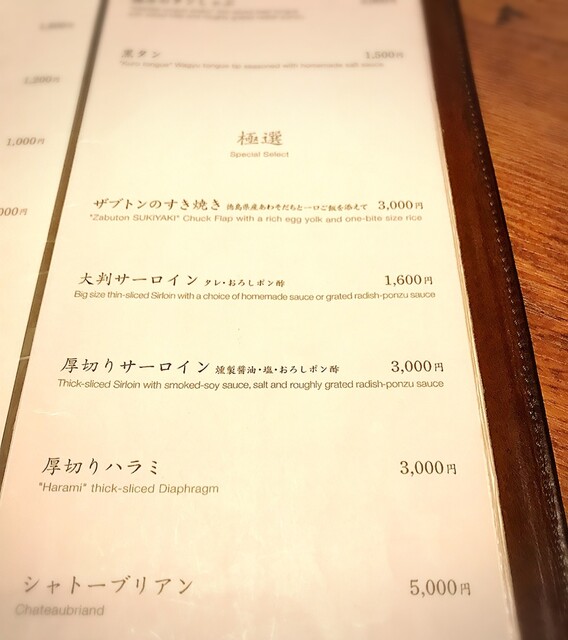 黒タン 1,500円
"Kuro tongue" Wagyu tongue tip seasoned with homemade salt sauce
極選
Special Select
ザブトンのすき焼き 徳島県産あわそだちと一口ご飯を添えて 3,000円
"Zabuton SUKIYAKI" Chuck Flap with a rich egg yolk and one-bite size rice
大判サーロイン タレ・おろしポン酢 1,600円
Big size thin-sliced Sirloin with a choice of homemade sauce or grated radish-ponzu sauce
厚切りサーロイン 燻製醤油・塩・おろしポン酢 3,000円
Thick-sliced Sirloin with smoked-soy sauce, salt and roughly grated radish-ponzu sauce
厚切りハラミ 3,000円
"Harami" thick-sliced Diaphragm
シャトーブリアン 5,000円
Chateaubriand
1,200円
1,000円
000円